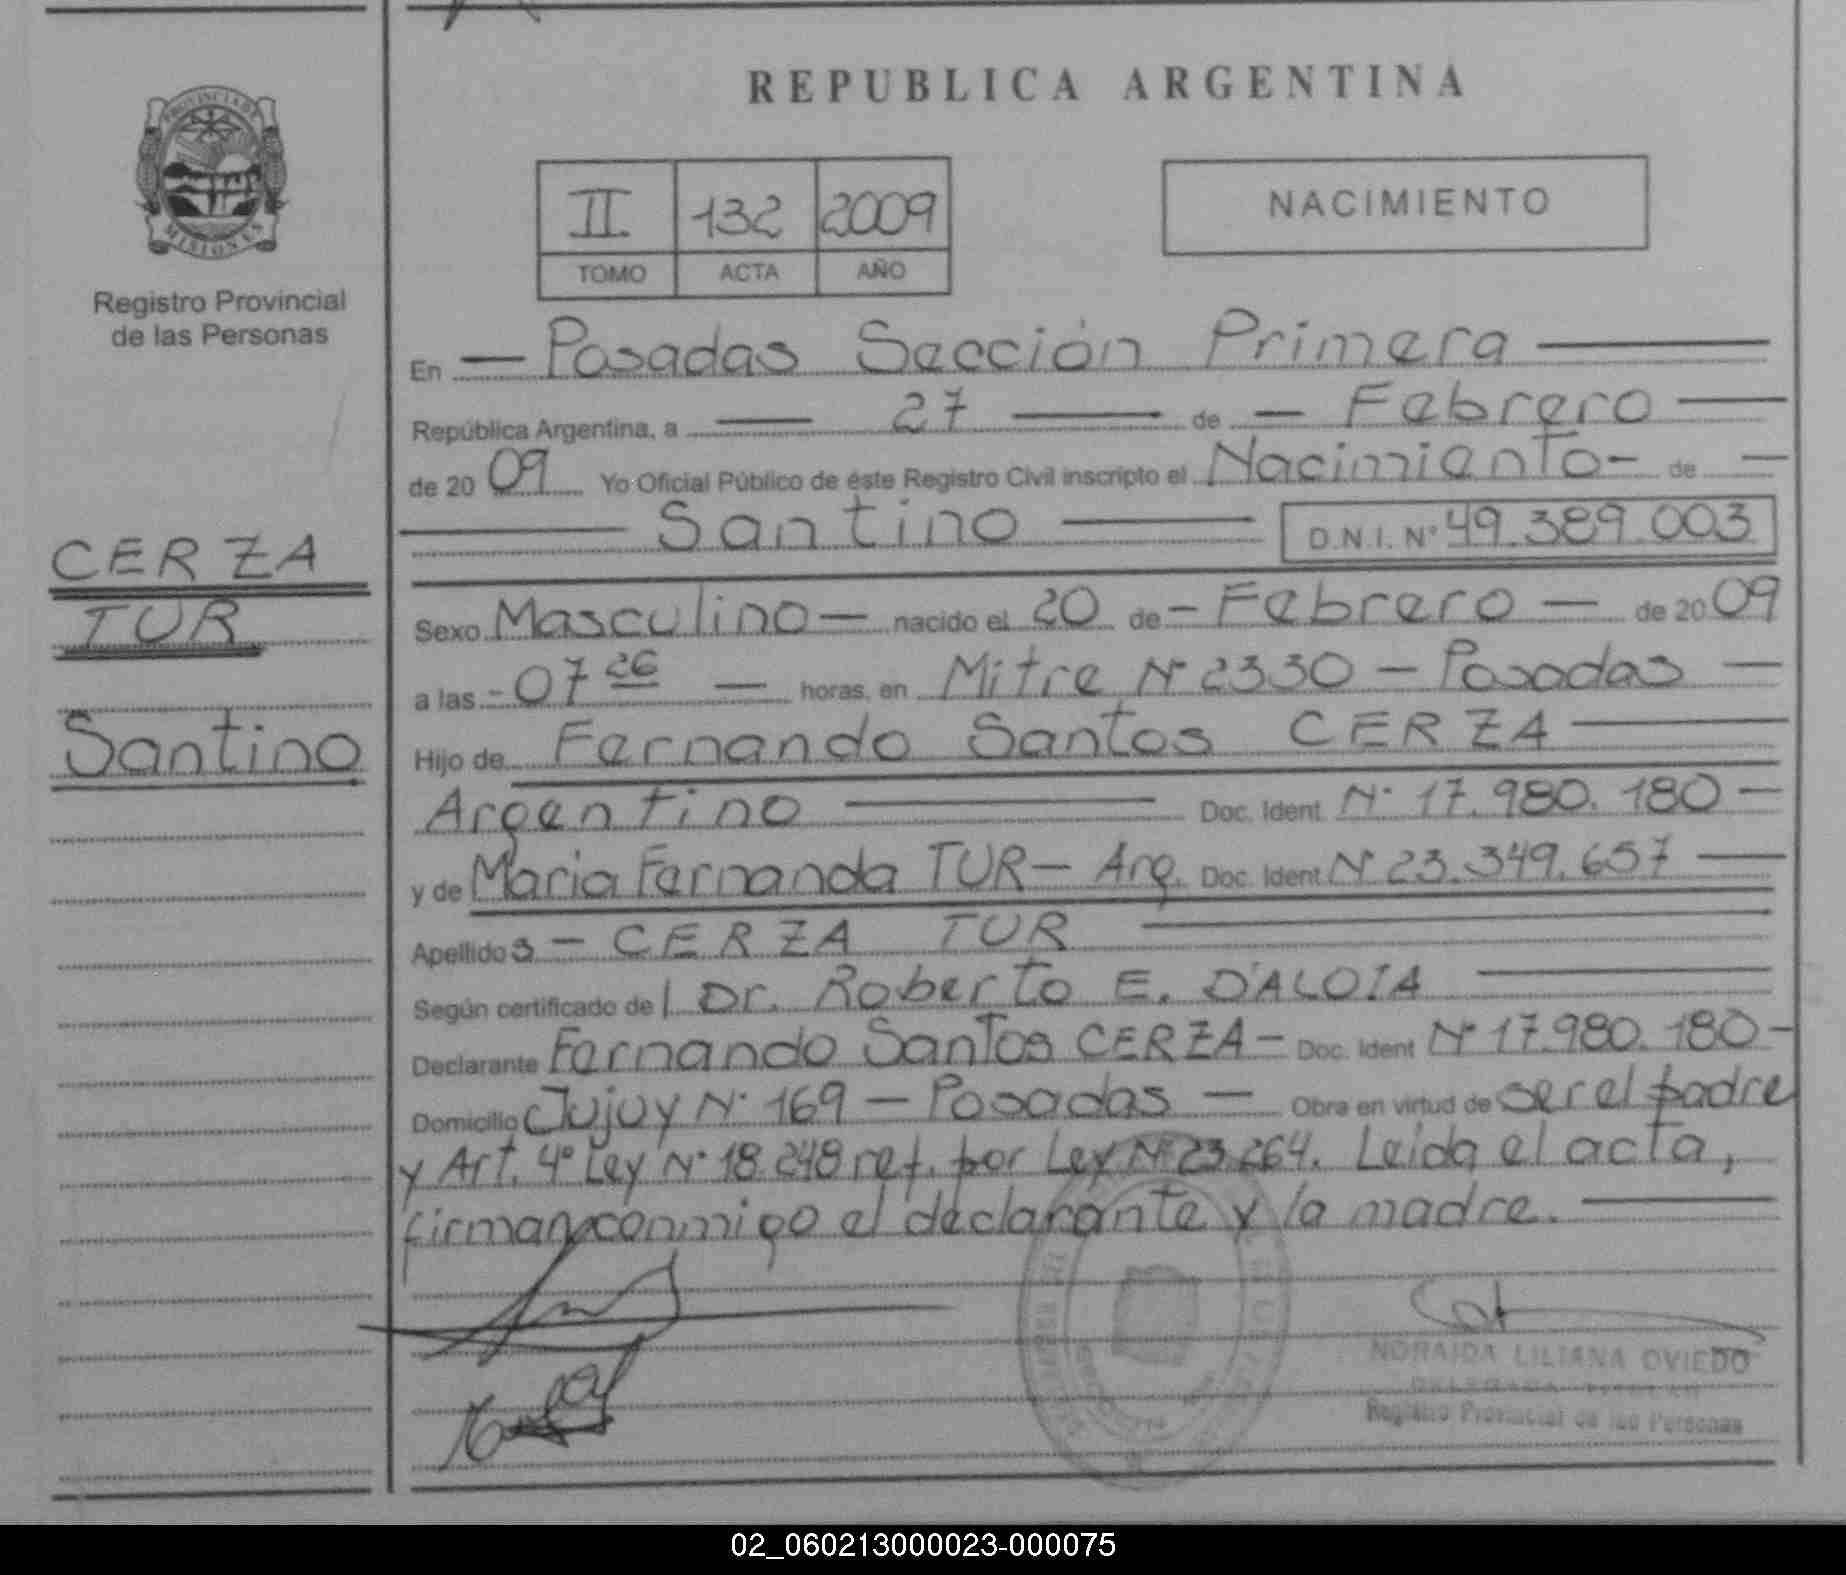 REPUBLICA ARGENTINA
PROVINCIA DE
MISIONES
Registro Provincial
de las Personas
II 132 2009
TOMO ACTA AÑO
NACIMIENTO
En — Posadas Sección Primera —
República Argentina, a — 27 — de — Febrero —
de 20 09 Yo Oficial Público de éste Registro Civil inscripto el Nacimiento — de —
— Santino — D.N.I. Nº 49.389.003
CERZA
TUR
Santino
Sexo Masculino — nacido el 20 de — Febrero — de 20 09
a las - 07 26 — horas, en Mitre Nº 2330 — Posadas —
Hijo de Fernando Santos CERZA —
Argentino — Doc. Ident. Nº 17.980.180 —
y de Maria Fernanda TUR — Arg. Doc. Ident Nº 23.349.657 —
Apellidos — CERZA TUR —
Según certificado del Dr. Roberto E. D'ALOIA —
Declarante Fernando Santos CERZA — Doc. Ident Nº 17.980.180 —
Domicilio Jujuy Nº 169 — Posadas — Obra en virtud de ser el padre
y Art. 4º Ley Nº 18.248 ref. por Ley Nº 23.264. Leida el acta,
firman conmigo el declarante y la madre. —
NORAIDA LILIANA OVIEDO
DELEGADA TITULAR
Registro Provincial de las Personas
02_060213000023-000075